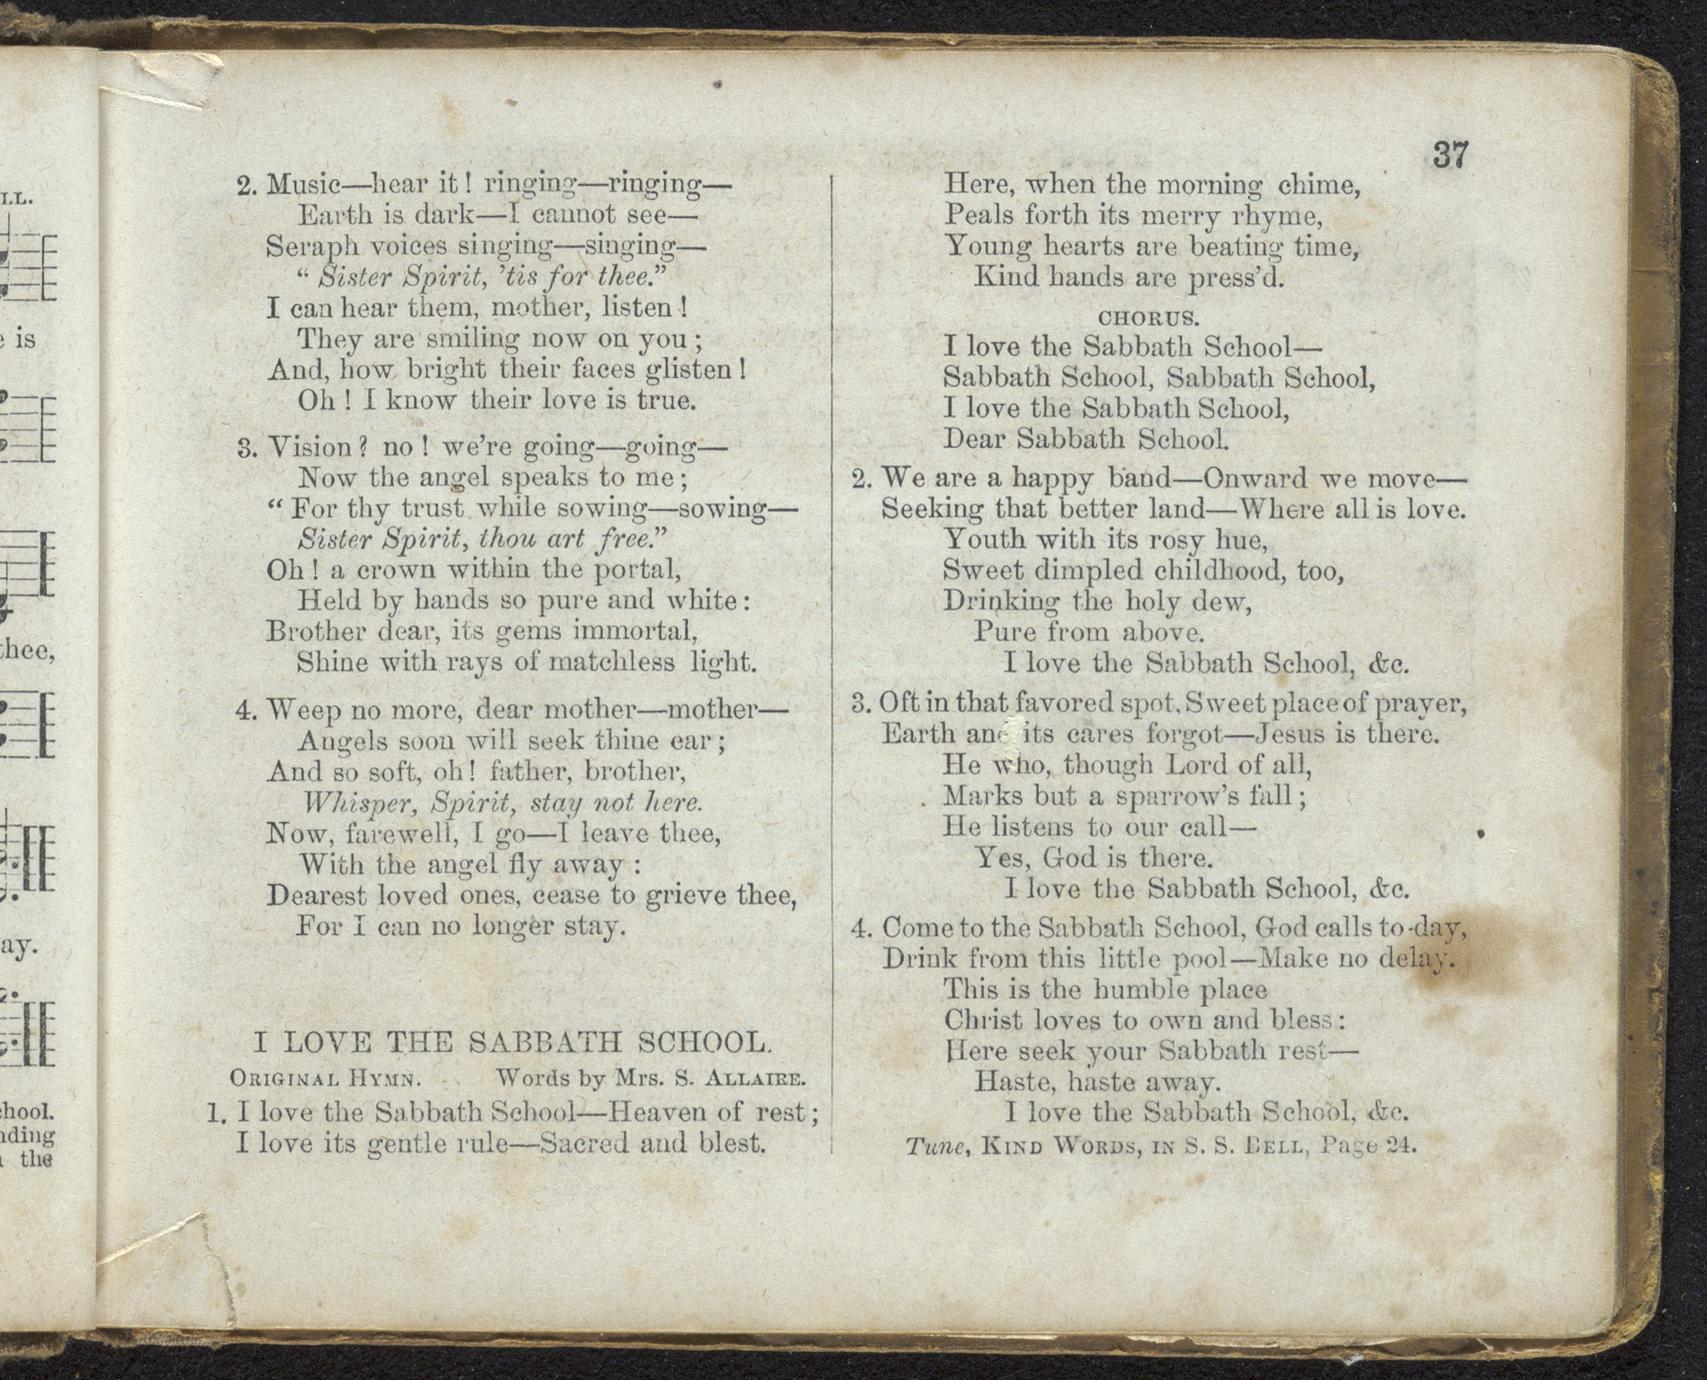 LL.
is
thee,
ay.
hool.
nding
the
37
2. Music—hear it! ringing—ringing—
Earth is dark—I cannot see—
Seraph voices singing—singing—
“ Sister Spirit, ’tis for thee.”
I can hear them, mother, listen!
They are smiling now on you;
And, how bright their faces glisten!
Oh! I know their love is true.
3. Vision? no! we’re going—going—
Now the angel speaks to me;
“ For thy trust while sowing—sowing—
Sister Spirit, thou art free.”
Oh! a crown within the portal,
Held by hands so pure and white:
Brother dear, its gems immortal,
Shine with rays of matchless light.
4. Weep no more, dear mother—mother—
Angels soon will seek thine ear;
And so soft, oh! father, brother,
Whisper, Spirit, stay not here.
Now, farewell, I go—I leave thee,
With the angel fly away:
Dearest loved ones, cease to grieve thee,
For I can no longer stay.
I LOVE THE SABBATH SCHOOL.
ORIGINAL HYMN. Words by MRS. S. ALLAIRE.
1. I love the Sabbath School—Heaven of rest;
I love its gentle rule—Sacred and blest.
Here, when the morning chime,
Peals forth its merry rhyme,
Young hearts are beating time,
Kind hands are press’d.
CHORUS.
I love the Sabbath School—
Sabbath School, Sabbath School,
I love the Sabbath School,
Dear Sabbath School.
2. We are a happy band—Onward we move—
Seeking that better land—Where all is love.
Youth with its rosy hue,
Sweet dimpled childhood, too,
Drinking the holy dew,
Pure from above.
I love the Sabbath School, &c.
3. Oft in that favored spot, Sweet place of prayer,
Earth and its cares forgot—Jesus is there.
He who, though Lord of all,
Marks but a sparrow’s fall;
He listens to our call—
Yes, God is there.
I love the Sabbath School, &c.
4. Come to the Sabbath School, God calls to-day,
Drink from this little pool—Make no delay.
This is the humble place
Christ loves to own and bless:
Here seek your Sabbath rest—
Haste, haste away.
I love the Sabbath School, &c.
Tune, KIND WORDS, IN S. S. BELL, Page 24.